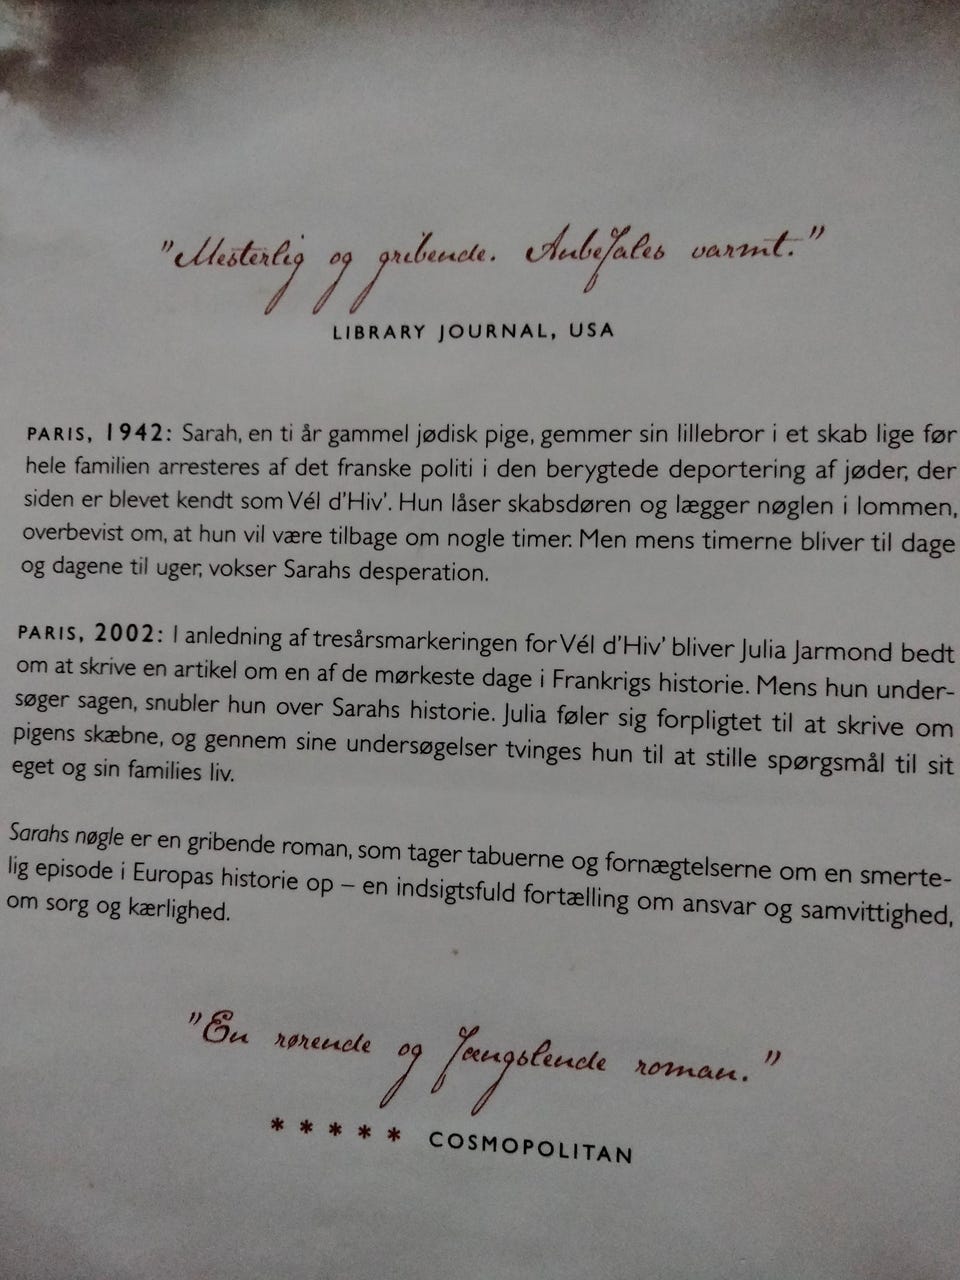 "Mesterlig og gribende. Anbefales varmt."
LIBRARY JOURNAL, USA
PARIS, 1942: Sarah, en ti år gammel jødisk pige, gemmer sin lillebror i et skab lige før
hele familien arresteres af det franske politi i den berygtede deportering af jøder, der
siden er blevet kendt som Vél d'Hiv'. Hun låser skabsdøren og lægger nøglen i lommen,
overbevist om, at hun vil være tilbage om nogle timer. Men mens timerne bliver til dage
og dagene til uger, vokser Sarahs desperation.
PARIS, 2002: I anledning af tresårsmarkeringen for Vél d'Hiv' bliver Julia Jarmond bedt
om at skrive en artikel om en af de mørkeste dage i Frankrigs historie. Mens hun under-
søger sagen, snubler hun over Sarahs historie. Julia føler sig forpligtet til at skrive om
pigens skæbne, og gennem sine undersøgelser tvinges hun til at stille spørgsmål til sit
eget og sin families liv.
Sarahs nøgle er en gribende roman, som tager tabuerne og fornægtelserne om en smerte-
lig episode i Europas historie op – en indsigtsfuld fortælling om ansvar og samvittighed,
om sorg og kærlighed.
"En rørende og fængslende roman."
* * * * * COSMOPOLITAN